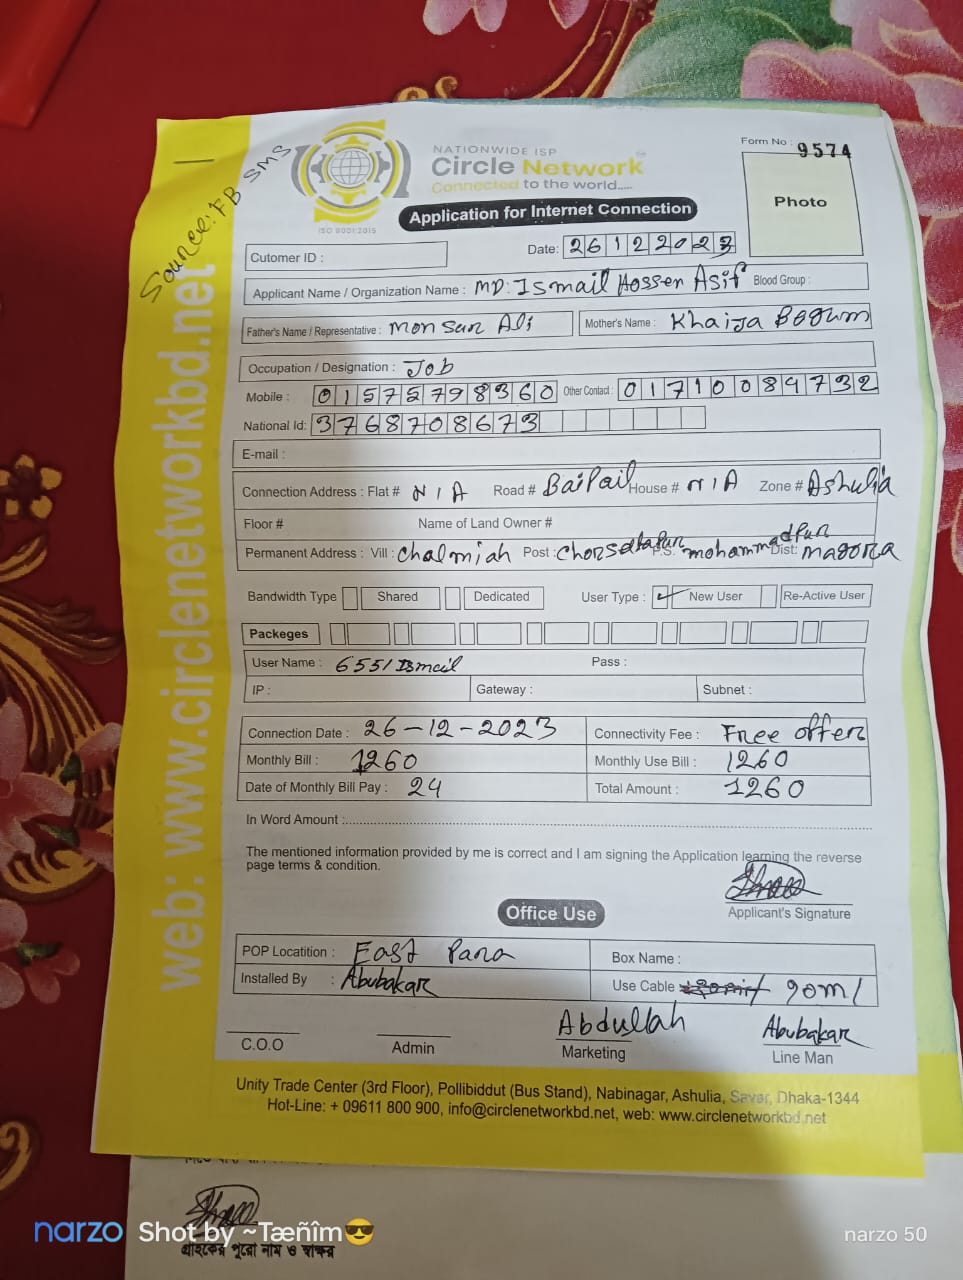 Source: FB SMS
NATIONWIDE ISP
Circle Network
Connected to the world.....
ISO 9001:2015
Form No : 9574
Photo
Application for Internet Connection
Cutomer ID :
Date: 26122023
Applicant Name / Organization Name : MD: Ismail Hossen Asif Blood Group :
Father's Name / Representative : Monsur Ali Mother's Name : Khaija Begum
Occupation / Designation : Job
Mobile : 01575798360 Other Contact : 01710084732
National Id: 3768708673
E-mail :
Connection Address : Flat # N/A Road # BaiPail House # N/A Zone # Ashulia
Floor # Name of Land Owner #
Permanent Address : Vill : Chalmiah Post : P.S: mohammadpur Dist: magora
Bandwidth Type Shared Dedicated User Type : ✓ New User Re-Active User
Packeges
User Name : 6551 Ismail Pass :
IP : Gateway : Subnet :
Connection Date : 26-12-2023 Connectivity Fee : Free offer
Monthly Bill : 1260 Monthly Use Bill : 1260
Date of Monthly Bill Pay : 24 Total Amount : 1260
In Word Amount :
The mentioned information provided by me is correct and I am signing the Application learning the reverse
page terms & condition.
Applicant's Signature
Office Use
POP Locatition : East Para Box Name :
Installed By : Abubakar Use Cable 90m/
Abdullah Abubakar
C.O.O Admin Marketing Line Man
Unity Trade Center (3rd Floor), Pollibiddut (Bus Stand), Nabinagar, Ashulia, Savar, Dhaka-1344
Hot-Line: + 09611 800 900, info@circlenetworkbd.net, web: www.circlenetworkbd.net
web: www.circlenetworkbd.net
গ্রাহকের পুরো নাম ও স্বাক্ষর
narzo Shot by ~Tæñîm😎
narzo 50